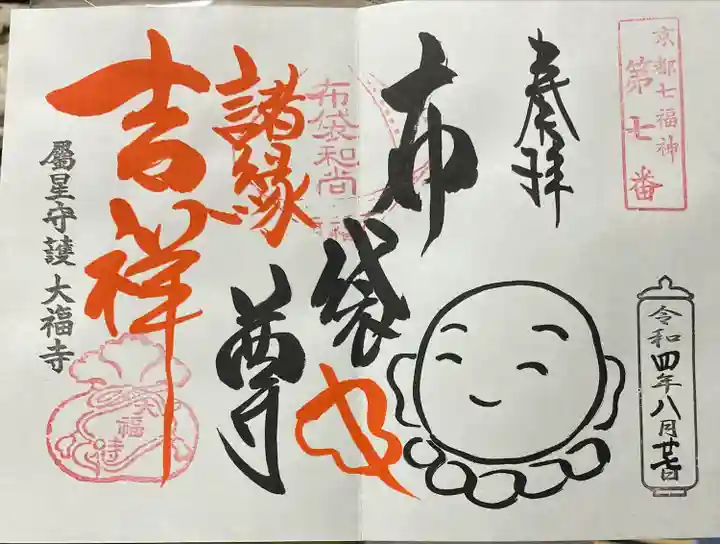 京都七福神
第七番
奉拝
令和四年八月廿七日
布袋尊
布袋和尚
諸縁
吉祥
属星守護 大福寺
大福寺